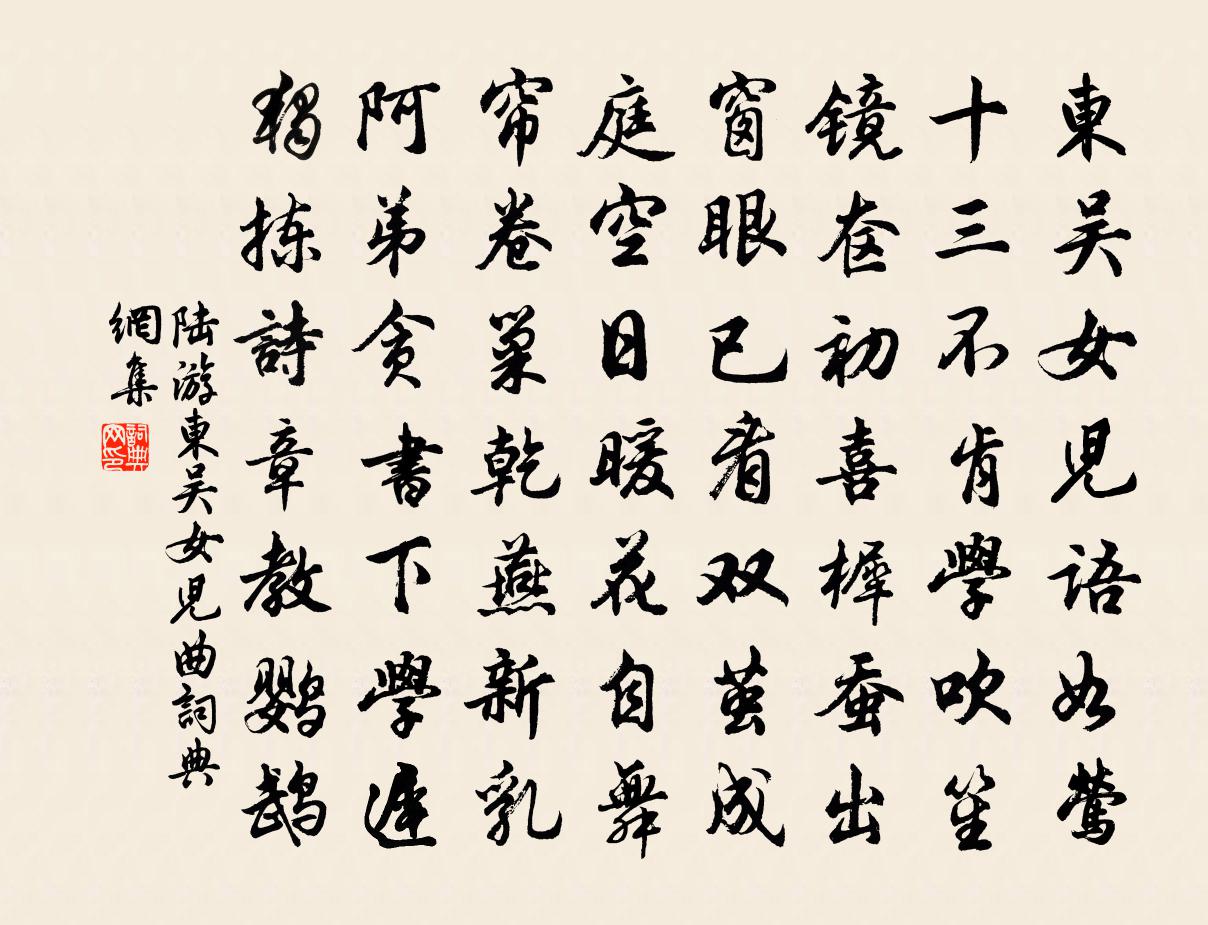 東吴女児語如鶯
十三不肯學吹笙
镜奁初喜穉蚕出
窗眼已看双茧成
庭空日暖花自舞
帘卷巢乾燕新乳
阿弟贪書下學遲
獨拣詩章教鹦鹉
陆游東吴女児曲詞典
網集
詞典网印